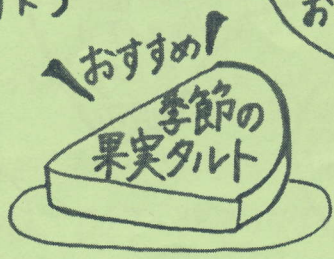 おすすめ
季節の
果実タルト